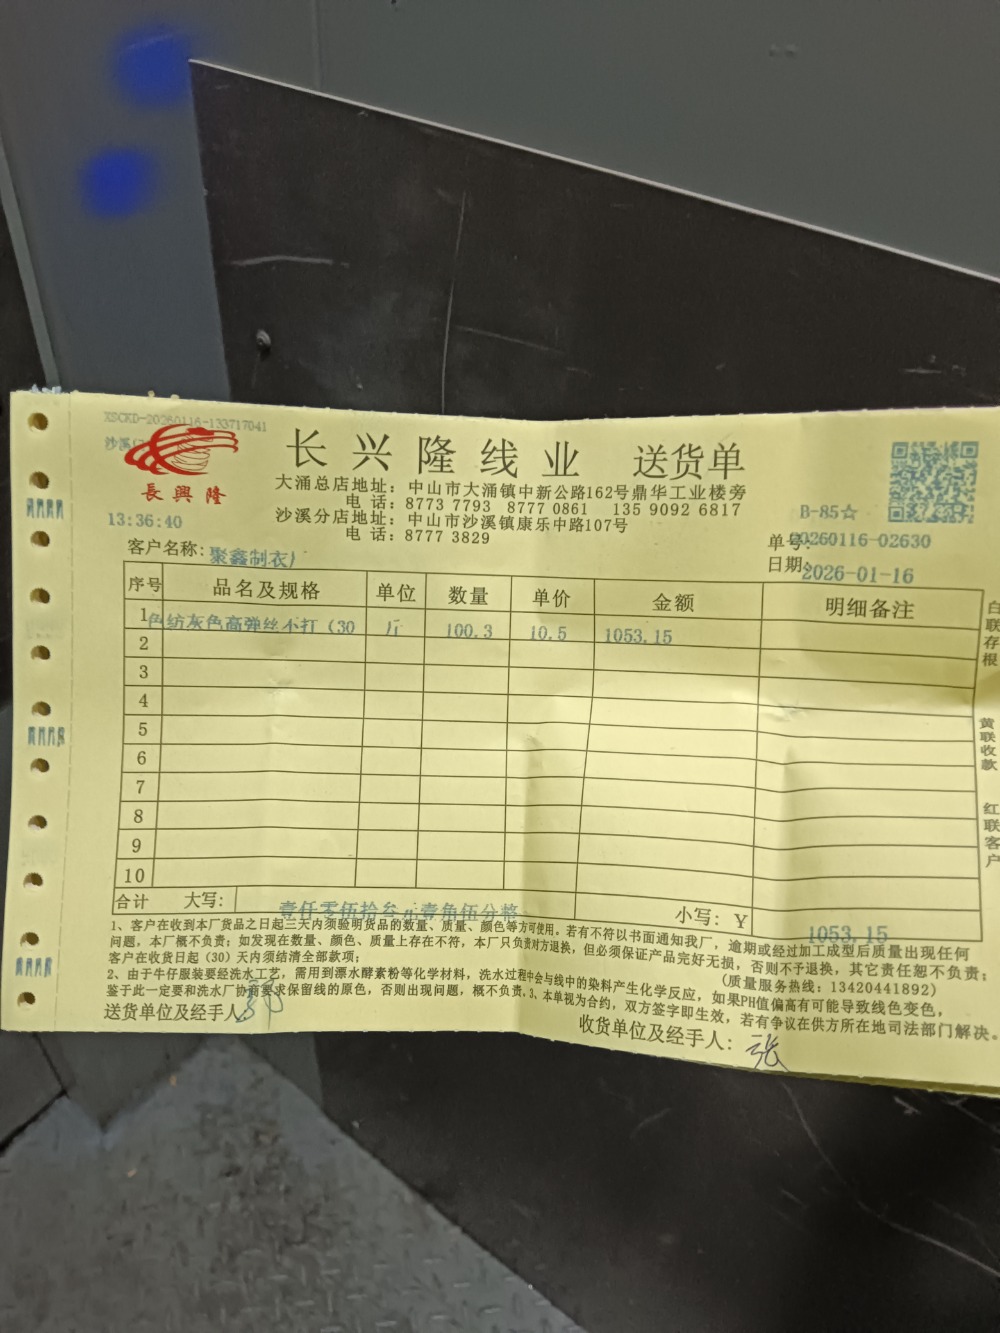 XSCKD-20260116-133717041
沙溪
長興隆
长兴隆线业 送货单
大涌总店地址：中山市大涌镇中新公路162号鼎华工业楼旁
电 话：8773 7793 8777 0861 135 9092 6817
沙溪分店地址：中山市沙溪镇康乐中路107号
电 话：8777 3829
13:36:40
B-85☆
客户名称：聚鑫制衣厂
单号：20260116-02630
日期：2026-01-16
序号 品名及规格 单位 数量 单价 金额 明细备注
1 色纺灰色高弹丝不打（30 斤 100.3 10.5 1053.15
2
3
4
5
6
7
8
9
10
合计 大写：壹仟零伍拾叁元壹角伍分整 小写：Y 1053.15
1、客户在收到本厂货品之日起三天内须验明货品的数量、质量、颜色等方可使用。若有不符以书面通知我厂，逾期或经过加工成型后质量出现任何
问题，本厂概不负责；如发现在数量、颜色、质量上存在不符，本厂只负责对方退换，但必须保证产品完好无损，否则不予退换，其它责任恕不负责；
客户在收货日起（30）天内须结清全部款项； (质量服务热线：13420441892)
2、由于牛仔服装要经洗水工艺，需用到漂水酵素粉等化学材料，洗水过程中会与线中的染料产生化学反应，如果PH值偏高有可能导致线色变色，
鉴于此一定要和洗水厂协商要求保留线的原色，否则出现问题，概不负责。3、本单视为合约，双方签字即生效，若有争议在供方所在地司法部门解决。
送货单位及经手人：
收货单位及经手人：张
白联存根
黄联收款
红联客户